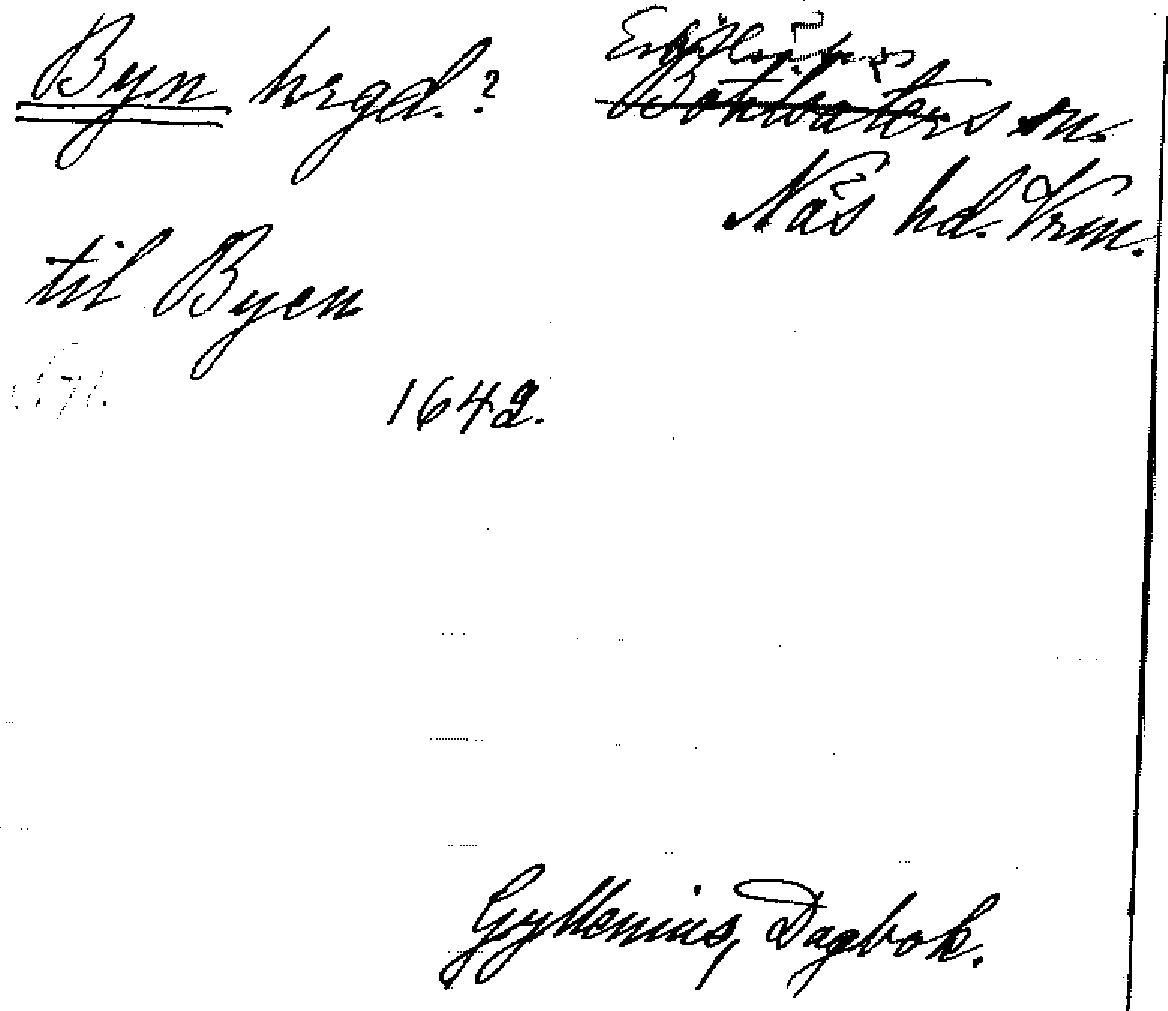 Byn hrgd.? Eskilsäters
Botilsäters sn.
Näs hd. Vrm.
til Byen
1642.
Gyllenius, Dagbok.